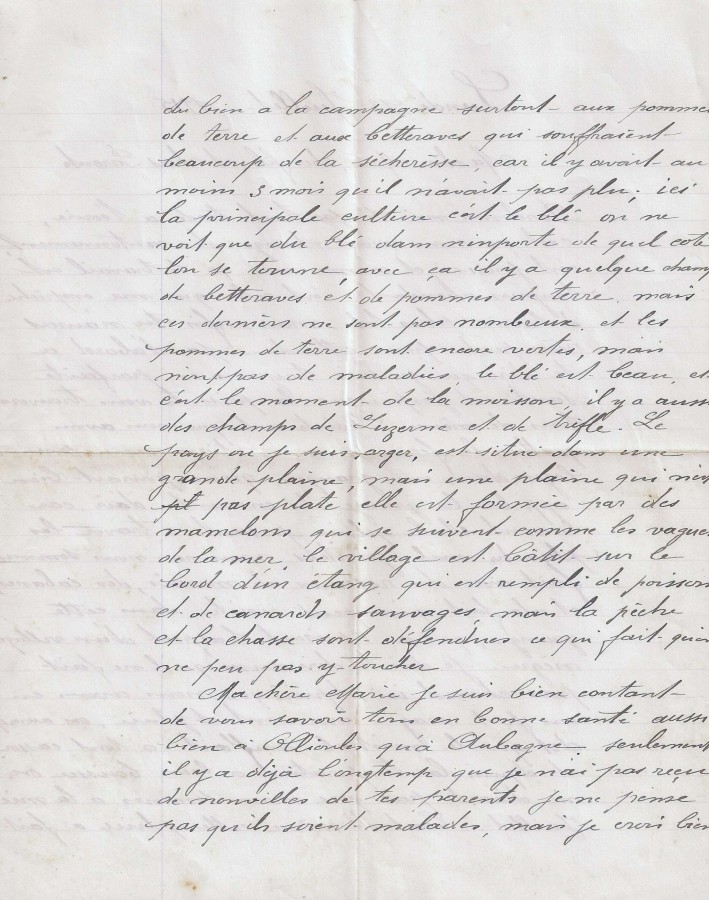 du bien a la campagne surtout aux pommes
de terre et aux betteraves qui souffraient
beaucoup de la sécherèsse, car il y avait au
moins 3 mois qu'il n'avait pas plu, ici
la principale culture c'ést le blé on ne
voit que du blé dans n'inporte de quel coté
lon se tourne, avec ça il y a quelque champ
de betteraves et de pommes de terre, mais
ces derniérs ne sont pas nombreux, et les
pommes de terre sont encore vertes, mais
n'ont pas de maladies, le blé est beau, et
c'ést le moment de la moisson, il y a aussi
des champs de Luzerne et de trifle. Le
pays ou je suis, est situé dans une
grande plaine, mais une plaine qui n'est
pas plate elle est formée par des
mamelons qui se suivent comme les vagues
de la mer, le village est bâtit sur le
bord d'un étang qui est rempli de poisson
et de canards sauvages, mais la pêche
et la chasse sont défendues ce qui fait qu'on
ne peu pas y toucher
Ma chère Marie je suis bien contant
de vous savoir tous en bonne santé aussi
bien à Ollioules qu'à Aubagne, seulement
il y a déjà longtemp que je n'ai pas reçu
de nouvilles de tes parents je ne pense
pas qu'ils soient malades, mais je crois bien